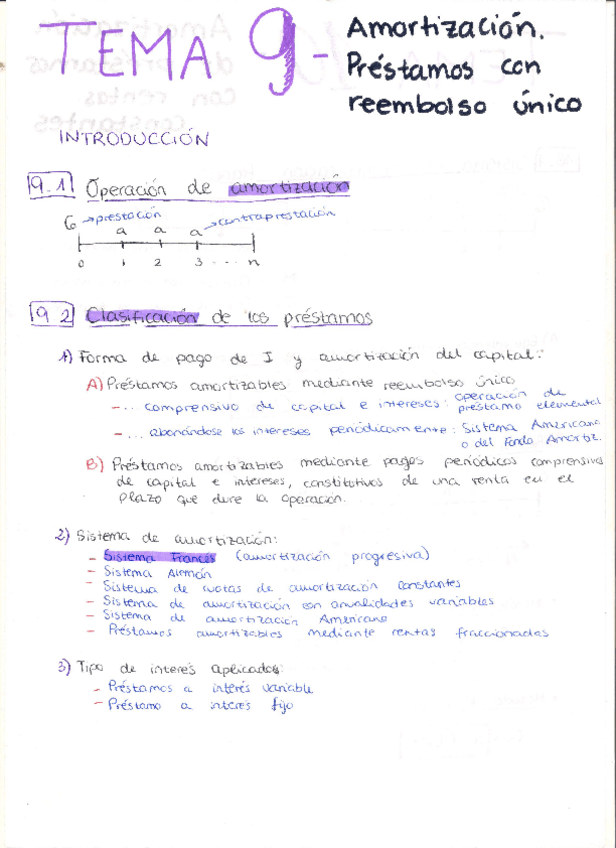 TEMA 9- Amortización.
Préstamos con
reembolso único
INTRODUCCIÓN
9.1 Operación de amortización
C₀ → prestación
a a a → contraprestación
0 1 2 3 ... n
9.2 Clasificación de los préstamos
1) Forma de pago de I y amortización del capital:
A) Préstamos amortizables mediante reembolso único
- ... comprensivo de capital e intereses: operación de
préstamo elemental
- ... abonándose los intereses periódicamente: Sistema Americano
o del Fondo Amortiz.
B) Préstamos amortizables mediante pagos periódicos comprensivos
de capital e intereses, constitutivos de una renta en el
plazo que dure la operación.
2) Sistema de amortización:
- Sistema Francés (amortización progresiva)
- Sistema Alemán
- Sistema de cuotas de amortización constantes
- Sistema de amortización con anualidades variables
- Sistema de amortización Americano
- Préstamos amortizables mediante rentas fraccionadas
3) Tipo de interés aplicados:
- Préstamos a interés variable
- Préstamo a interés fijo